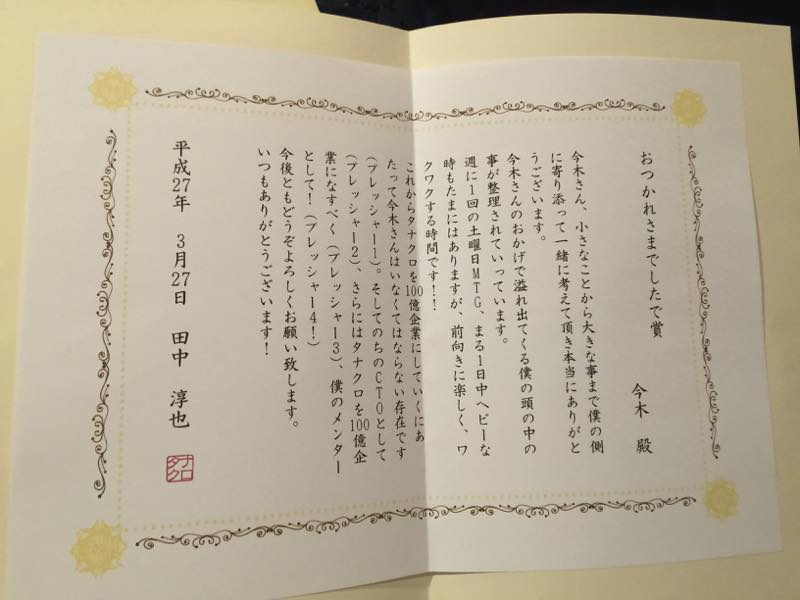 おつかれさまでしたで賞
今木　殿
今木さん、小さなことから大きな事まで僕の側
に寄り添って一緒に考えて頂き本当にありがと
うございます。
今木さんのおかげで溢れ出てくる僕の頭の中の
事が整理されていっています。
週に1回の土曜日MTG、まる1日中ヘビーな
時もたまにはありますが、前向きに楽しく、ワ
クワクする時間です！！
これからタナクロを100億企業にしていくにあ
たって今木さんはいなくてはならない存在です
（プレッシャー1）。そしてのちのCTOとして
（プレッシャー2）、さらにはタナクロを100億企
業になすべく（プレッシャー3）、僕のメンター
として！（プレッシャー4！）
今後ともどうぞよろしくお願い致します。
いつもありがとうございます！
平成27年　3月27日　田中　淳也
タナクロ